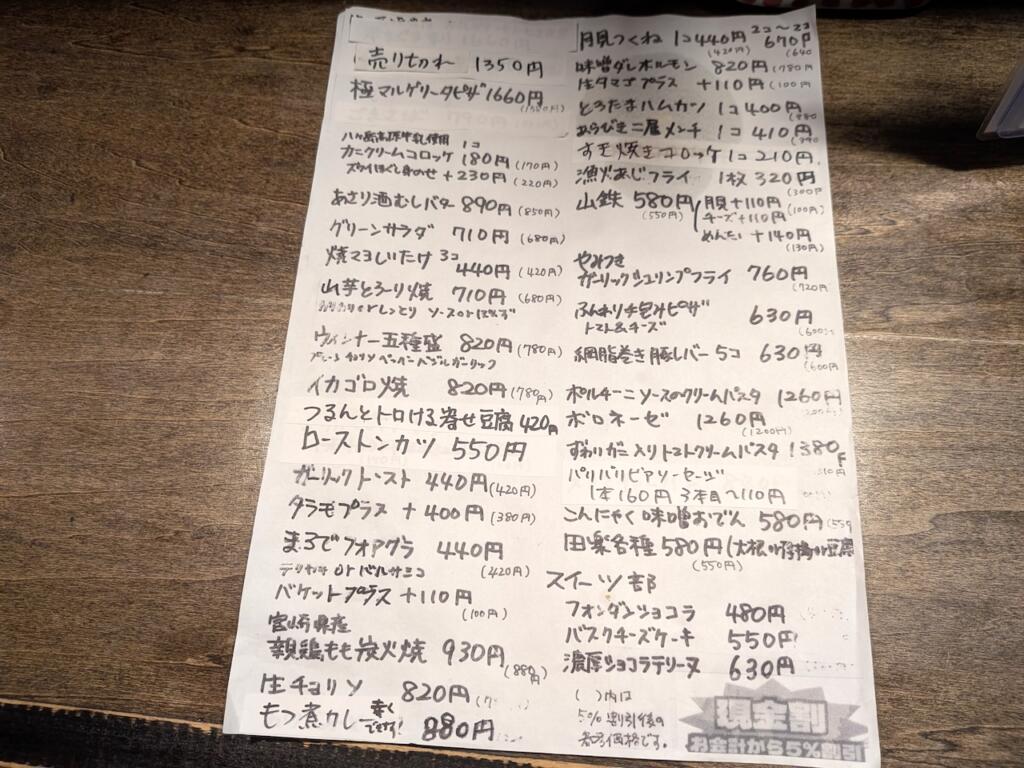 売りきれ 1350円
極マルゲリータピザ 1660円
八ヶ岳高原牛乳使用 1コ
カニクリームコロッケ 180円(170円)
ズワイほぐし身のせ +230円(220円)
あさり酒むしバター 890円(850円)
グリーンサラダ 710円(680円)
焼マヨしいたけ 3コ
440円(420円)
山芋とろーり焼 710円(680円)
ソースorぽんず
ウィンナー五種盛 820円(780円)
プレーン チョリソ ペッパー バジル ガーリック
イカゴロ焼 820円(780円)
つるんとトロける寄せ豆腐 420円
ローストンカツ 550円
ガーリックトースト 440円(420円)
タラモプラス +400円(380円)
まるでフォアグラ 440円
テリヤキorバルサミコ (420円)
バケットプラス +110円
(100円)
宮崎県産
親鶏もも炭火焼 930円
(880円)
生チョリソ 820円
もつ煮カレー 辛くできます! 880円
月見つくね 1コ440円 2コ〜2コ 670円
(420円)
味噌ダレホルモン 820円(780円)
生タマゴプラス +110円(100円)
とろたまハムカツ 1コ400円
あらびき二層メンチ 1コ 410円
すき焼きコロッケ 1コ 210円
漁火あじフライ 1枚 320円
(300円)
山鉄 580円
(550円)
月見+110円
チーズ+110円(100円)
めんたい +140円
(130円)
やみつき
ガーリックシュリンプフライ 760円
(720円
ふんわり手包みピザ 630円
トマト&チーズ (600円
網脂巻き豚レバー 5コ 630円
(600円
ポルチーニソースのクリームパスタ 1260円
ボロネーゼ 1260円
(1200円)
ずわいガニ入りトマトクリームパスタ 1380円
パリパリビアソーセージ
1本160円 3本目〜110円
こんにゃく味噌おでん 580円
田楽各種 580円(大根or厚揚or豆腐
(550円)
スイーツ部
フォンダンショコラ 480円
バスクチーズケーキ 550円
濃厚ショコラテリーヌ 630円
( )内は
5%割引後の
参考価格です。
現金割
お会計から5%割引